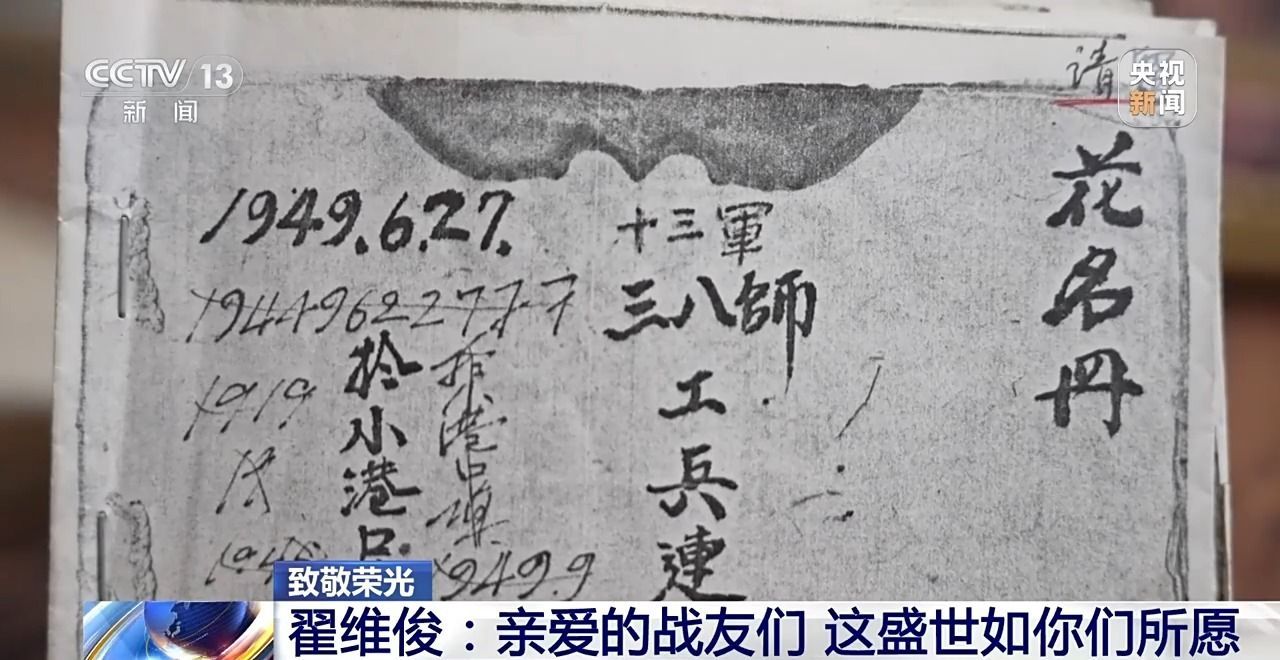 CCTV 13
新闻
央视
新闻
请
花名冊
十三軍
三八師
工兵連
1949.6.27.
拎小港口
1919
9499.9
致敬荣光
翟维俊：亲爱的战友们 这盛世如你们所愿